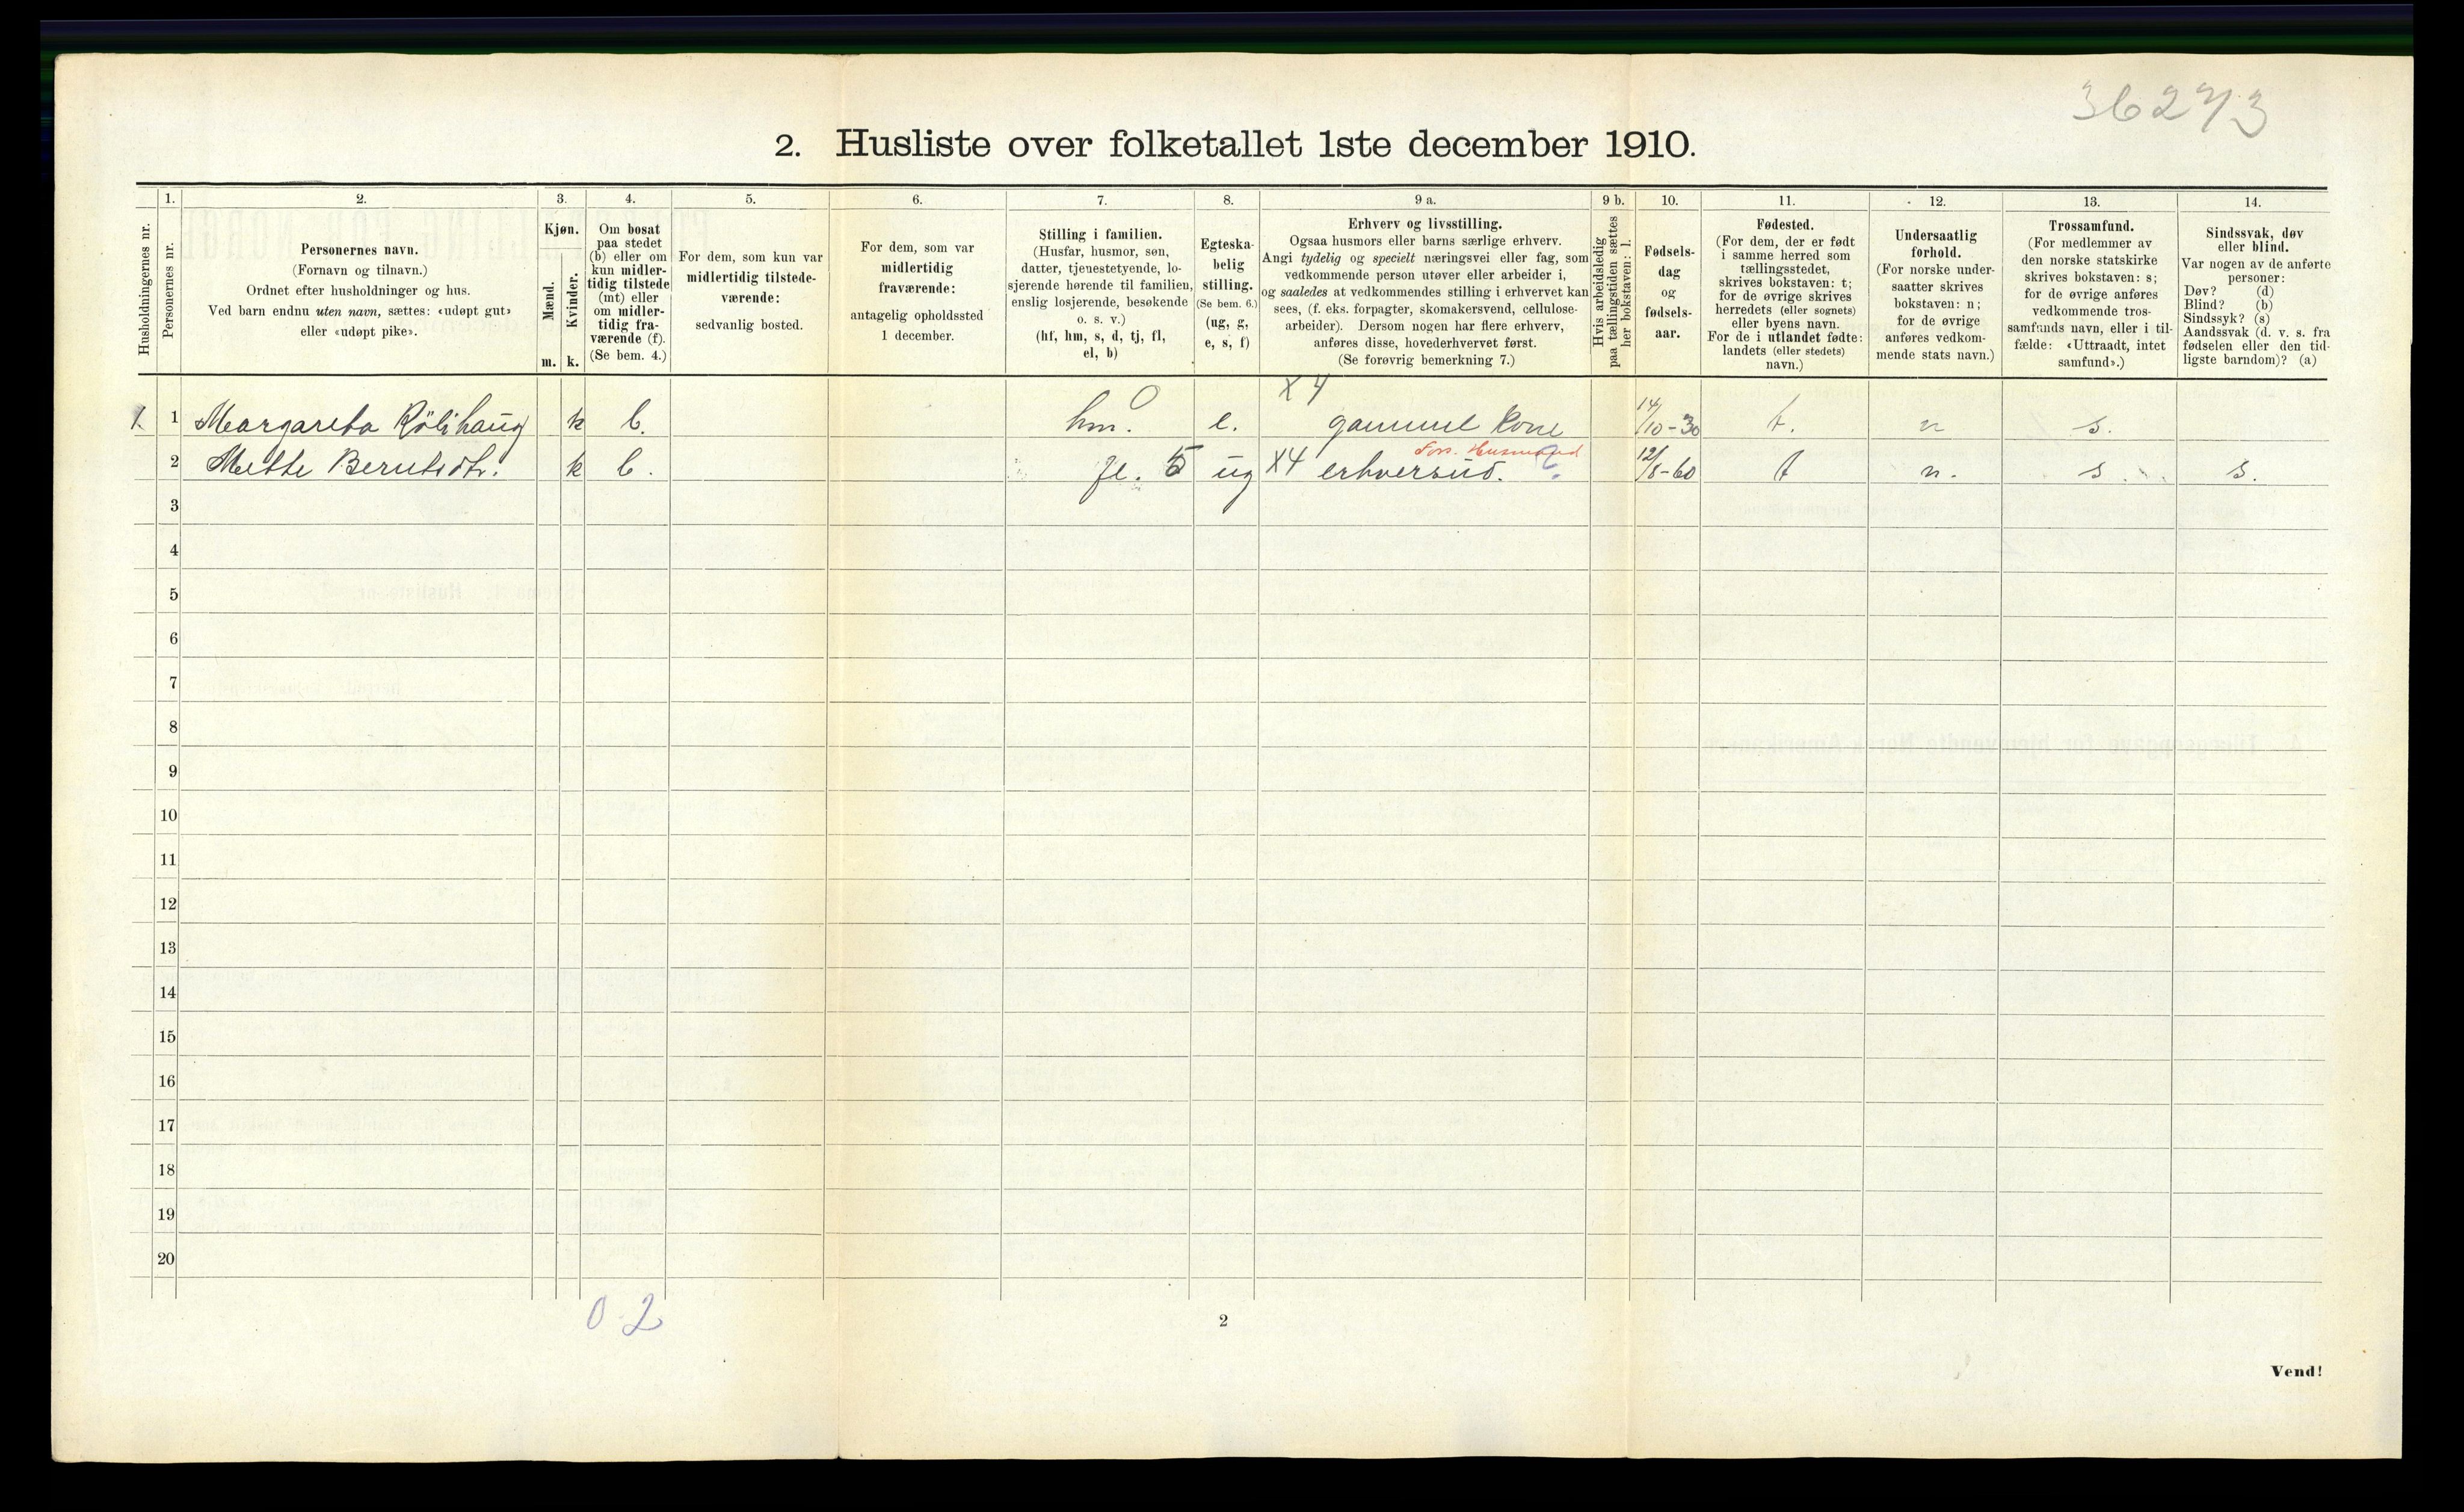 36273
2. Husliste over folketallet 1ste december 1910.
Husholdningernes nr.
1.
Personernes nr.
2.
Personernes navn.
(Fornavn og tilnavn.)
Ordnet efter husholdninger og hus.
Ved barn endnu uten navn, sættes: «udøpt gut»
eller «udøpt pike».
3.
Kjøn.
Mænd.
m.
Kvinder.
k.
4.
Om bosat
paa stedet
(b) eller om
kun midler-
tidig tilstede
(mt) eller
om midler-
tidig fra-
værende (f).
(Se bem. 4.)
5.
For dem, som kun var
midlertidig tilstede-
værende:
sedvanlig bosted.
6.
For dem, som var
midlertidig
fraværende:
antagelig opholdssted
1 december.
7.
Stilling i familien.
(Husfar, husmor, søn,
datter, tjenestetyende, lo-
sjerende hørende til familien,
enslig losjerende, besøkende
o. s. v.)
(hf, hm, s, d, tj, fl,
el, b)
8.
Egteska-
belig
stilling.
(Se bem. 6.)
(ug, g,
e, s, f)
9 a.
Erhverv og livsstilling.
Ogsaa husmors eller barns særlige erhverv.
Angi tydelig og specielt næringsvei eller fag, som
vedkommende person utøver eller arbeider i,
og saaledes at vedkommendes stilling i erhvervet kan
sees, (f. eks. forpagter, skomakersvend, cellulose-
arbeider). Dersom nogen har flere erhverv,
anføres disse, hovederhvervet først.
(Se forøvrig bemerkning 7.)
9 b.
Hvis arbeidsledig
paa tællingstiden sættes
her bokstaven: l.
10.
Fødsels-
dag
og
fødsels-
aar.
11.
Fødested.
(For dem, der er født
i samme herred som
tællingsstedet,
skrives bokstaven: t;
for de øvrige skrives
herredets (eller sognets)
eller byens navn.
For de i utlandet fødte:
landets (eller stedets)
navn.)
12.
Undersaatlig
forhold.
(For norske under-
saatter skrives
bokstaven: n;
for de øvrige
anføres vedkom-
mende stats navn.)
13.
Trossamfund.
(For medlemmer av
den norske statskirke
skrives bokstaven: s;
for de øvrige anføres
vedkommende tros-
samfunds navn, eller i til-
fælde: «Uttraadt, intet
samfund».)
14.
Sindssvak, døv
eller blind.
Var nogen av de anførte
personer:
Døv? (d)
Blind? (b)
Sindssyk? (s)
Aandssvak (d. v. s. fra
fødselen eller den tid-
ligste barndom)? (a)
X4
1. 1 Margareta Rölihaug k b. hm. 0 e. gammel kone 14/10-30 t. n s.
Husmand
2 Mette Berntsdtr. k b. fl. 5 ug X4 erhversud. ? 12/8-60 t n. s s.
3
4
5
6
7
8
9
10
11
12
13
14
15
16
17
18
19
20
0-2
2
Vend!